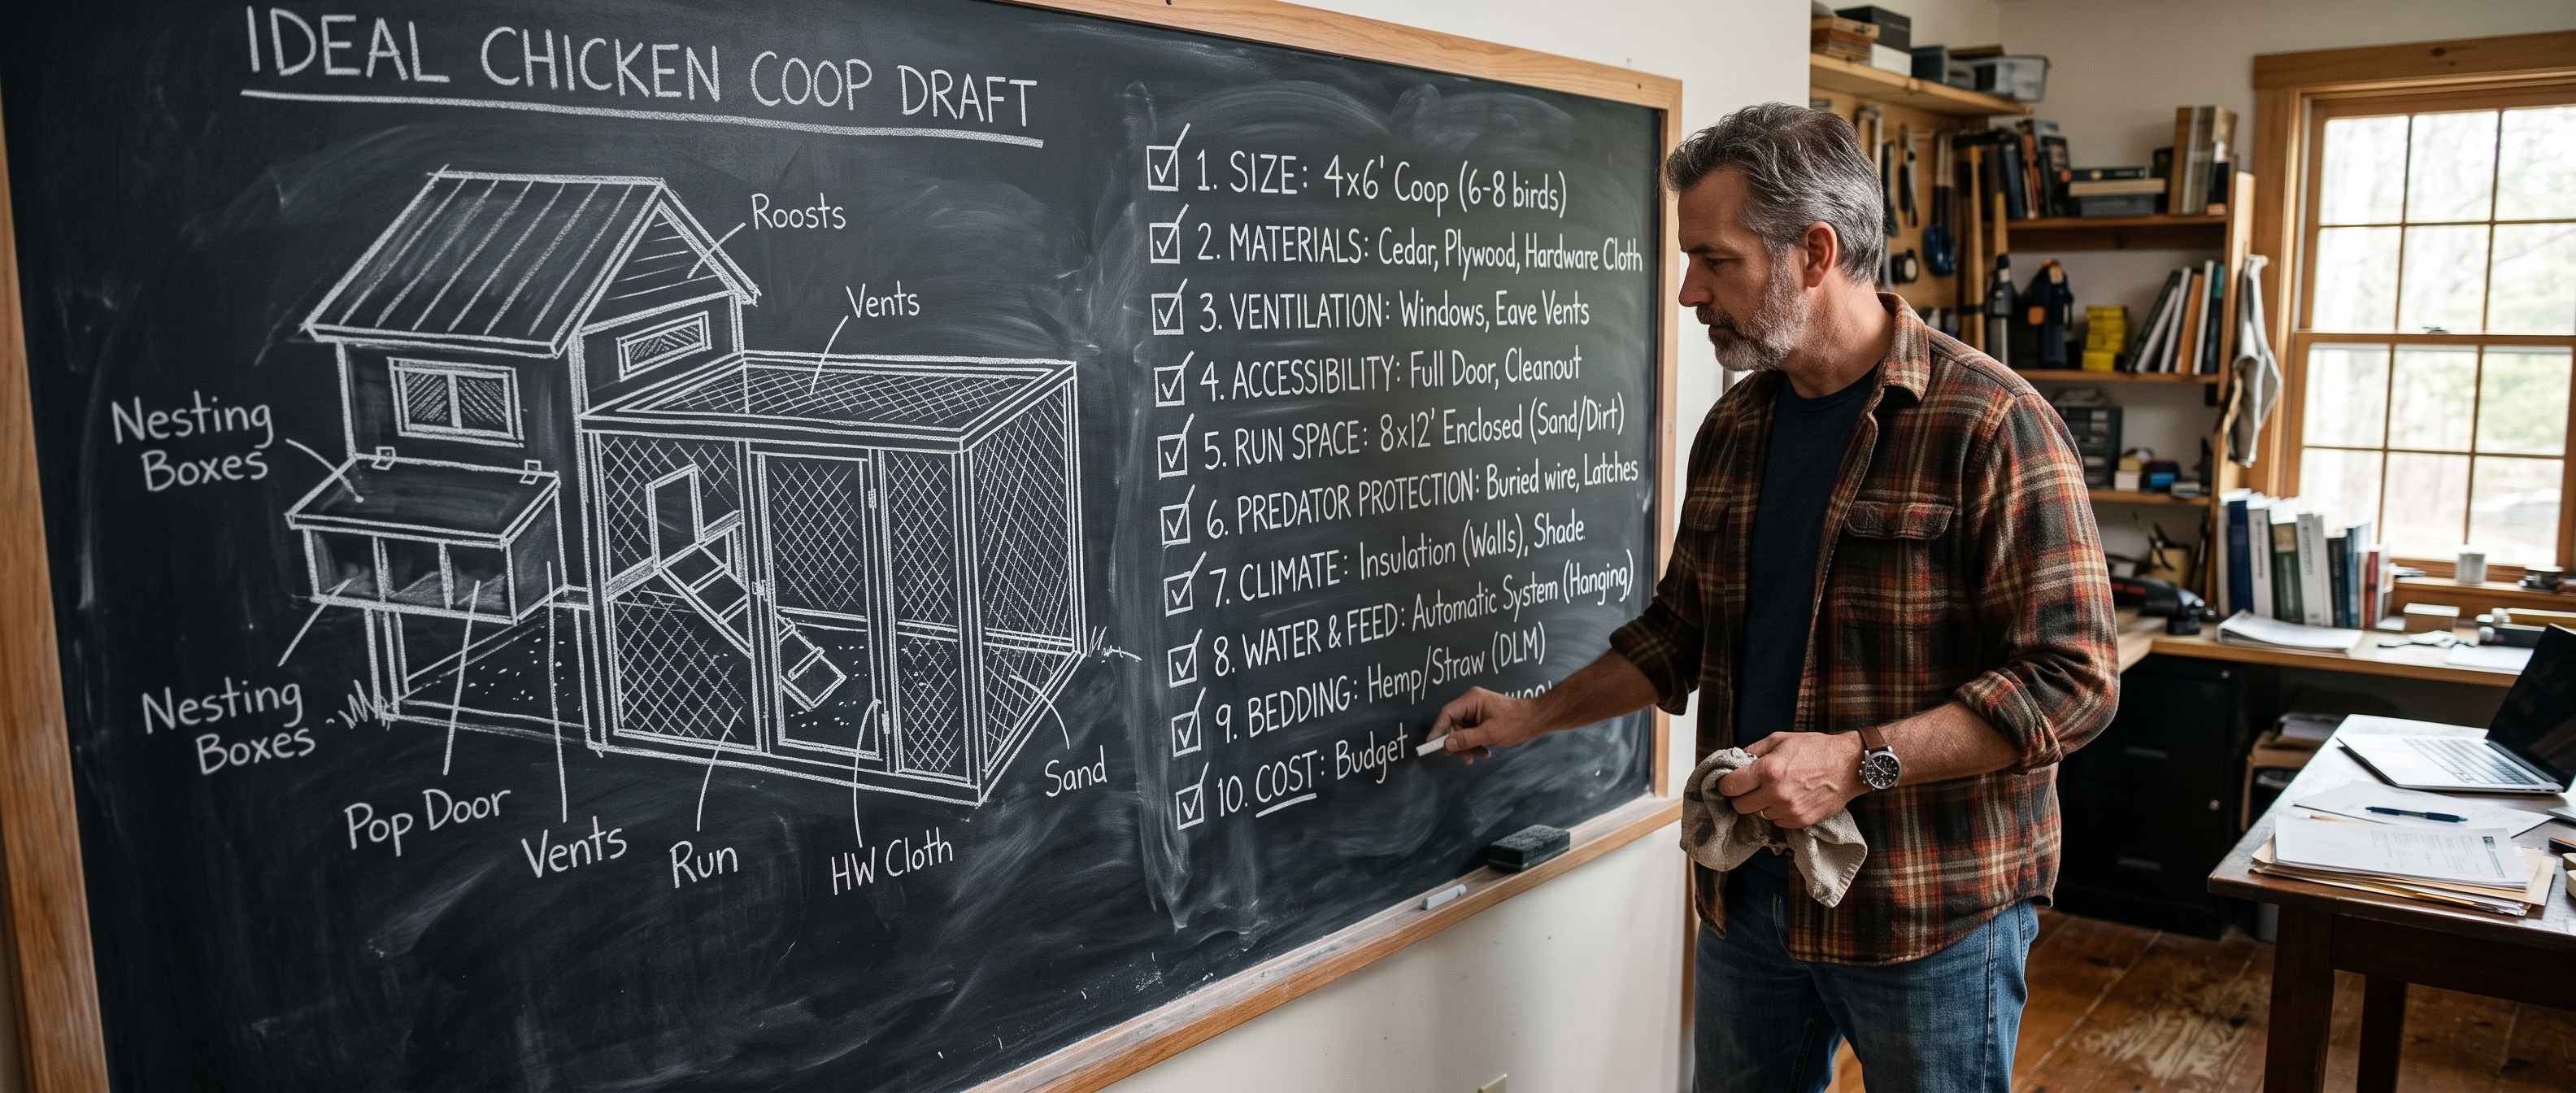 IDEAL CHICKEN COOP DRAFT
Roosts
Vents
Nesting
Boxes
Nesting
Boxes
Pop Door
Vents
Run
HW Cloth
Sand
1. SIZE: 4x6' Coop (6-8 birds)
2. MATERIALS: Cedar, Plywood, Hardware Cloth
3. VENTILATION: Windows, Eave Vents
4. ACCESSIBILITY: Full Door, Cleanout
5. RUN SPACE: 8x12' Enclosed (Sand/Dirt)
6. PREDATOR PROTECTION: Buried wire, Latches
7. CLIMATE: Insulation (Walls), Shade
8. WATER & FEED: Automatic System (Hanging)
9. BEDDING: Hemp/Straw (DLM)
10. COST: Budget